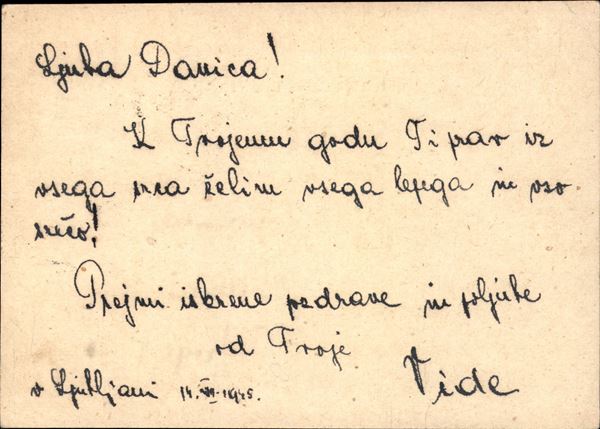 Ljuba Danica!
K Tvojemu godu Ti prav iz
vsega srca želim vsega lepega in vso
srečo!
Prejmi iskrene pozdrave in poljube
od Tvoje
Vide
v Ljubljani 14. VI. 1945.